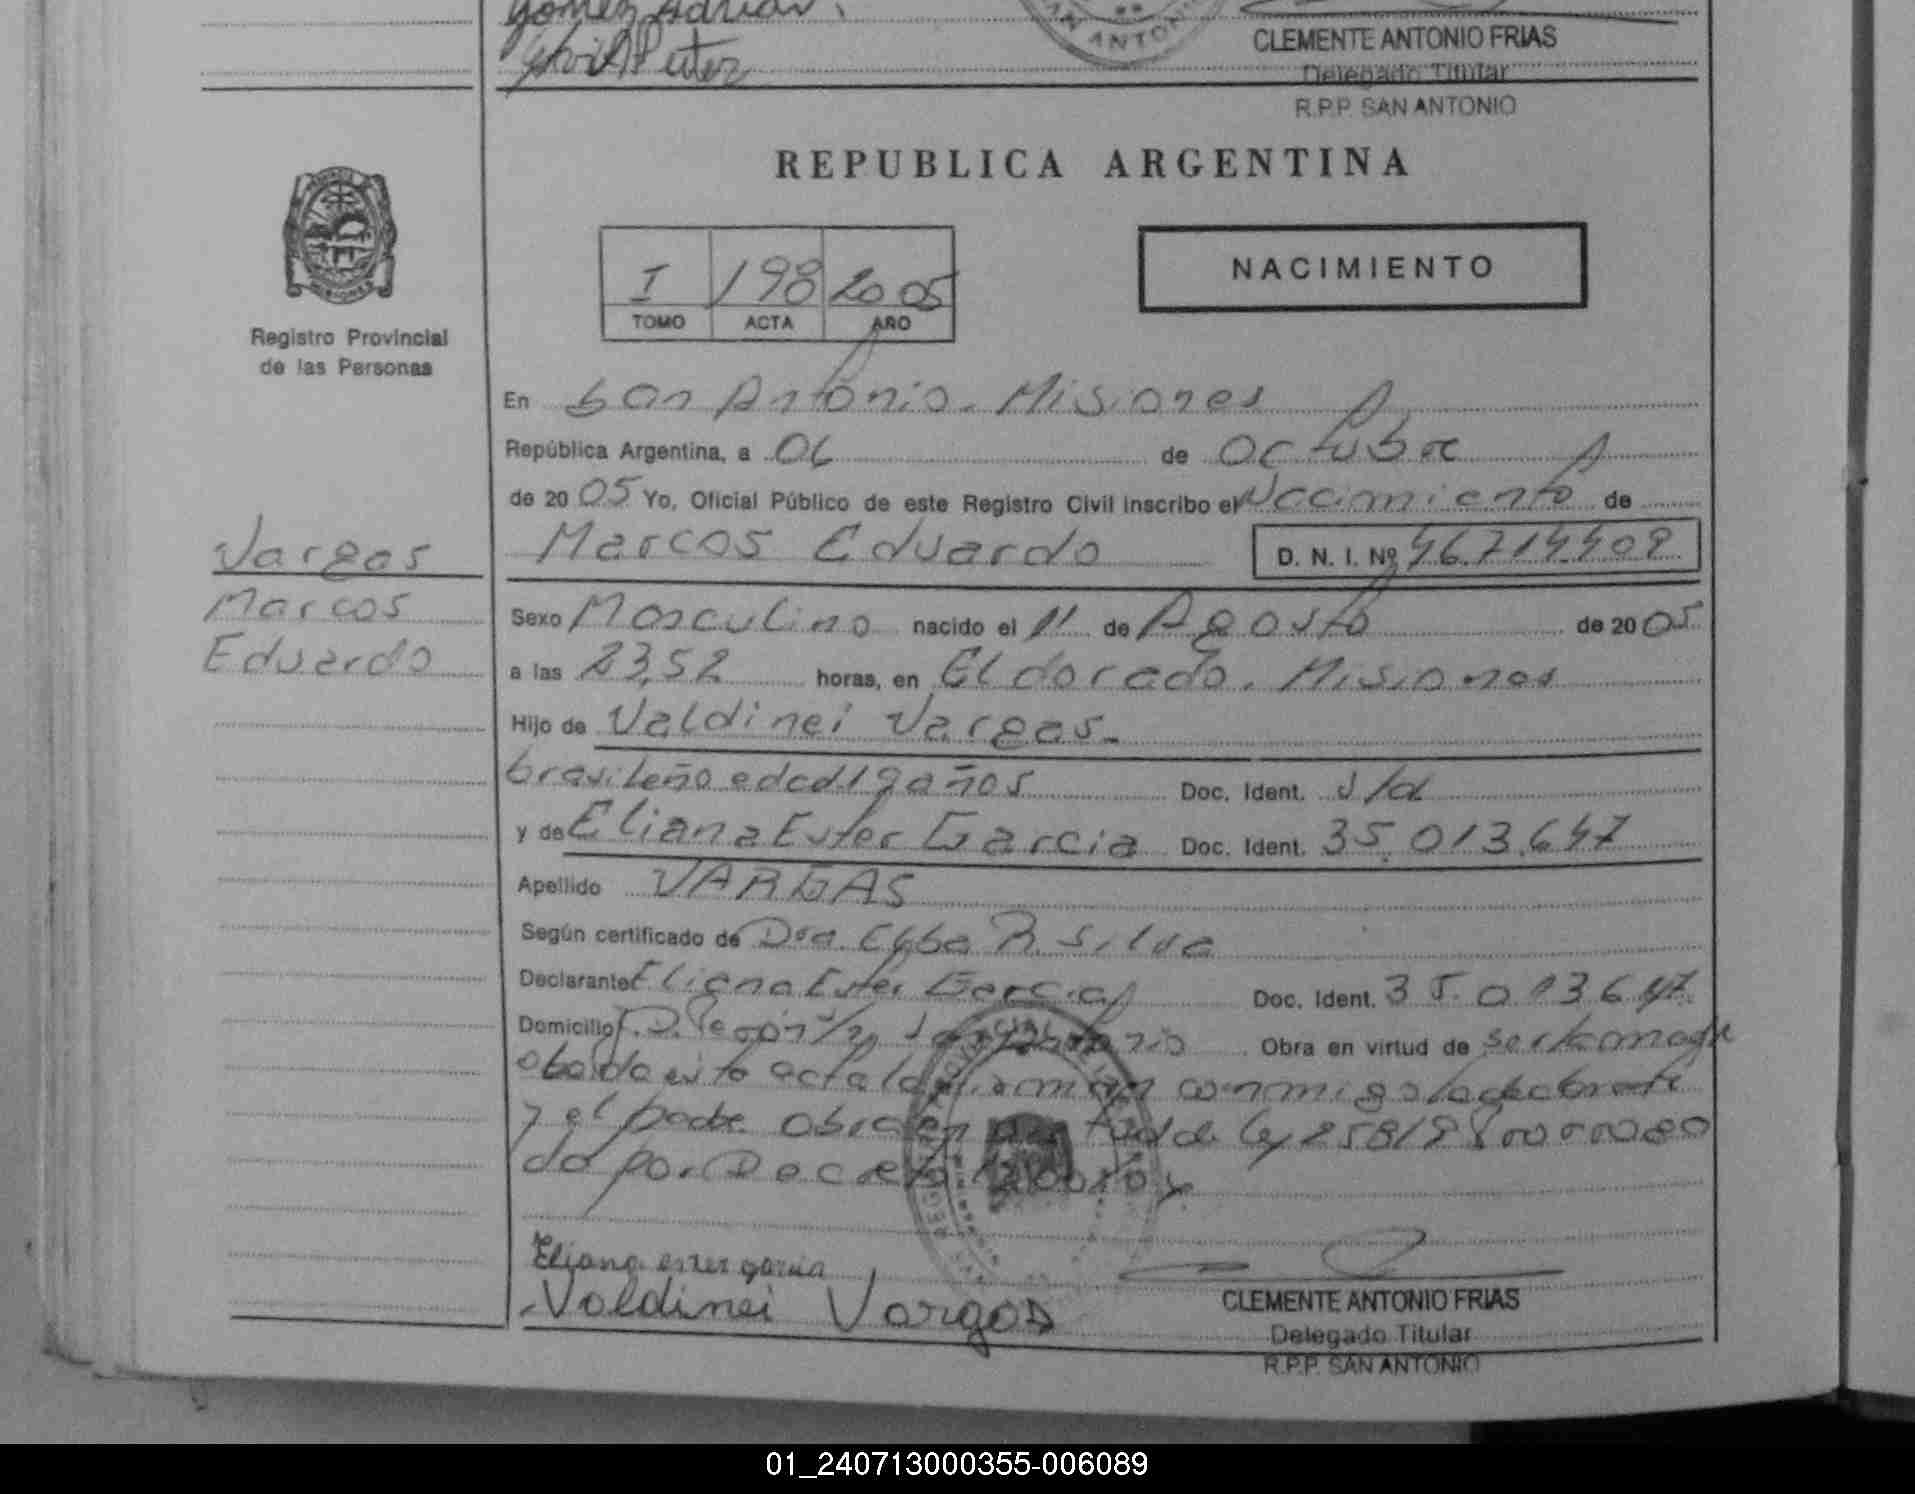 Gomez Adrian.
SAN ANTONIO
CLEMENTE ANTONIO FRIAS
Delegado Titular
R.P.P. SAN ANTONIO
REPUBLICA ARGENTINA
MISIONES
Registro Provincial
de las Personas
I 198 2005
TOMO ACTA AÑO
NACIMIENTO
En San Antonio. Misiones
República Argentina, a 06 de Octubre
de 2005 Yo, Oficial Público de este Registro Civil inscribo el Nacimiento de
Vargas
Marcos
Eduardo
Marcos Eduardo D. N. I. Nº 46.714.409
Sexo Masculino nacido el 11 de Agosto de 2005
a las 23,52 horas, en Eldorado. Misiones
Hijo de Valdinei Vargas.
brasileño edad 19 años Doc. Ident. s/d
y de Eliana Ester Garcia Doc. Ident. 35.013.647
Apellido VARGAS
Según certificado de Dra Elba R. Silva
Declarante Eliana Ester Garcia Doc. Ident. 35.013.647
Domicilio J.D. Perón s/n San Antonio Obra en virtud de ser la madre
esta acta la firman conmigo la declarante
y el padre Obra en virtud de Ley 25819
do por Decreto
Eliana ester garcia
Valdinei Vargas
CLEMENTE ANTONIO FRIAS
Delegado Titular
R.P.P. SAN ANTONIO
01_240713000355-006089